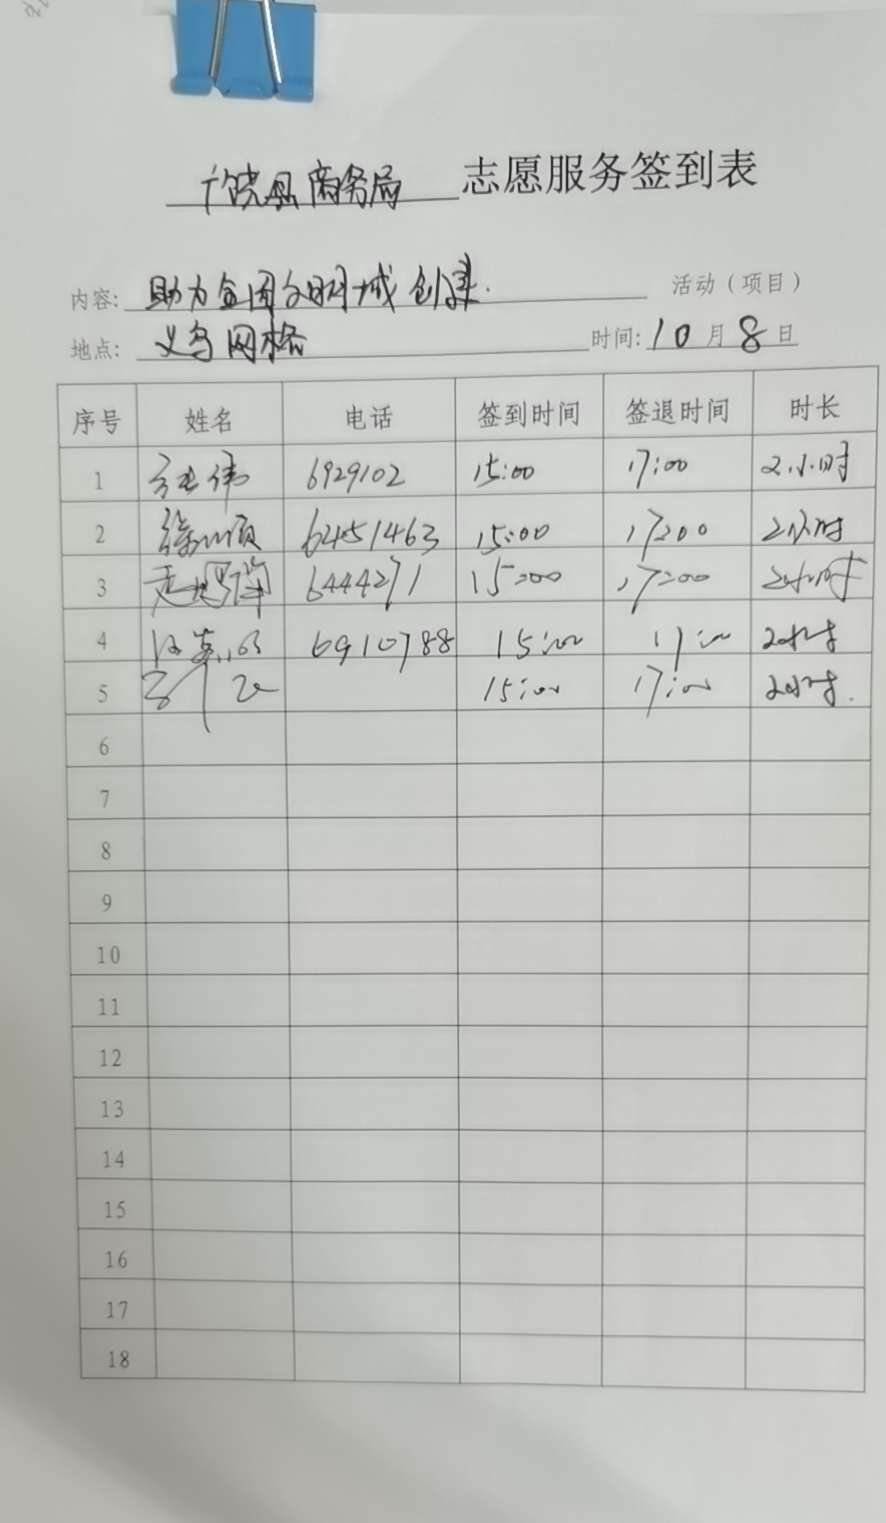 县商务局 志愿服务签到表
内容: 助力全国文明城创建. 活动（项目）
地点: 义乌网格 时间: 10月8日
序号 姓名 电话 签到时间 签退时间 时长
1 6929102 15:00 17:00 2小时
2 6451463 15:00 17:00 2小时
3 6444271 15:00 17:00 2小时
4 6910788 15:00 17:00 2小时
5 15:00 17:00 2小时.
6
7
8
9
10
11
12
13
14
15
16
17
18